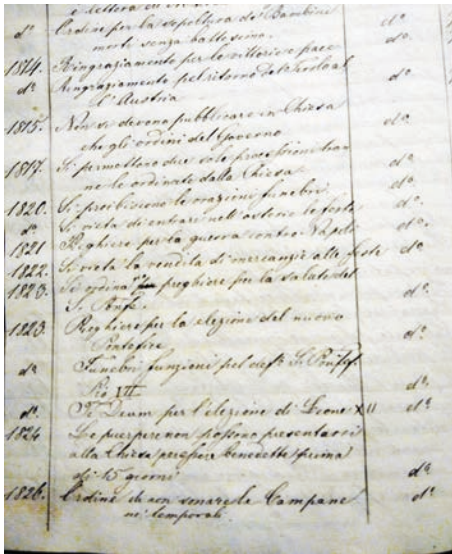 e lettera di
d.º Ordine per la sepoltura de' Bambini d.º
morti senza battesimo. d.º
1814. Ringraziamento per le vittorie e pace
d.º Ringraziamento pel ritorno del Tirolo al d.º
l'Austria
1815. Non si devono pubblicare in Chiesa d.º
che gli ordini del Governo
1817. Si permettono due sole processioni tran d.º
ne le ordinate dalla Chiesa
1820. Si proibiscono le orazioni funebri d.º
d.º Si vieta di entrare nell'osterie le feste d.º
1821 Preghiere per la guerra contro Napoli d.º
1822. Si vieta la vendita di mercanzie alle feste d.º
1823. Si ordina preghiere per la salute del
S. Ponfe. d.º
1823. Preghiere per la elezione del nuovo
Pontefice d.º
d.º Funebri funzioni pel def.º S. Pontef.
Pio VII d.º
d.º Te Deum per l'elezione di Leone XII d.º
1824 Le puerpere non possono presentarsi
alla Chiesa per esser benedette prima
di 15 giorni d.º
1826. Ordine di non sonare le Campane d.º
ne' temporali.